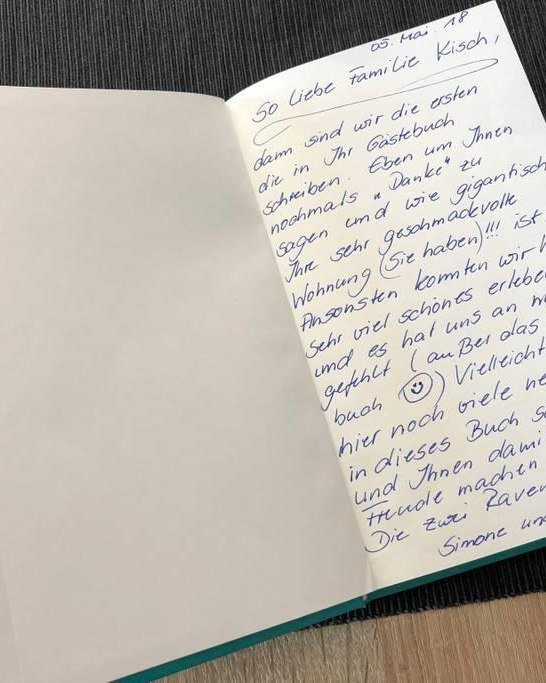 05. Mai 18
So liebe Familie Kisch,
dann sind wir die ersten
die in Ihr Gästebuch
schreiben. Eben um Ihnen
nochmals "Danke" zu
sagen und wie gigantisch
Ihre sehr geschmackvolle
Wohnung (Sie haben)!!! ist
Ansonsten konnten wir
sehr viel schönes erleben
und es hat uns an
gefehlt (außer das
buch ☺) Vielleicht
hier noch viele
in dieses Buch
und Ihnen
Freude machen
Die zwei
Simone